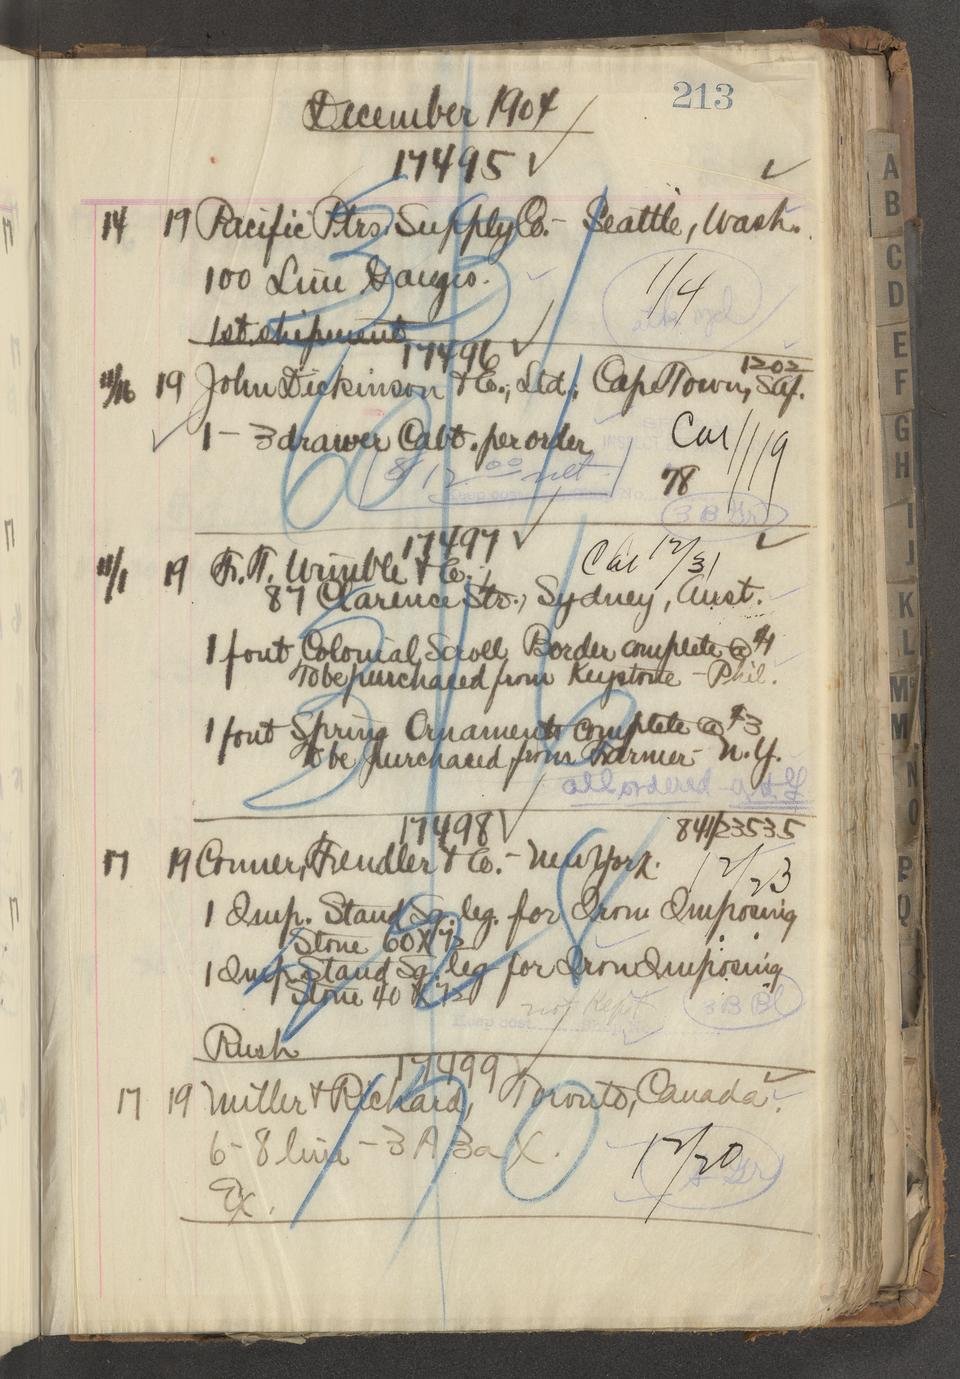 213
December 1904
17495
14 19 Pacific Ptrs. Supply Co. - Seattle, Wash.
100 Line Gauges.
1/4
1st shipment
17496
1202
11/16 19 John Dickinson & Co., Ltd., Cape Town, S.Af.
1 - 3 drawer Cabt. per order
Cat 1/19
$12.00 net
78
3 B Gr
17497
Cat 12/31
11/1 19 F. T. Wimble & Co.,
87 Clarence Str., Sydney, Aust.
1 font Colonial Scroll Border complete @ $4
To be purchased from Keystone - Phil.
1 font Spring Ornaments complete @ $3
To be purchased from Farmer - N.Y.
all ordered
17498
841/23535
17 19 Conner, Fendler & Co. - New York.
12/23
1 Imp. Stand Sq. leg. for Iron Imposing
Stone 60 X 72
1 Imp. Stand Sq. leg for Iron Imposing
Stone 40 X 72
not Kept
3 B Bl
Keep cost
Rush
17499
17 19 Miller & Richard, Toronto, Canada.
6 - 8 line - 3 A 3a X.
12/20
Ex.
A
B
C
D
E
F
G
H
I
J
K
L
M
M
N
O
P
Q